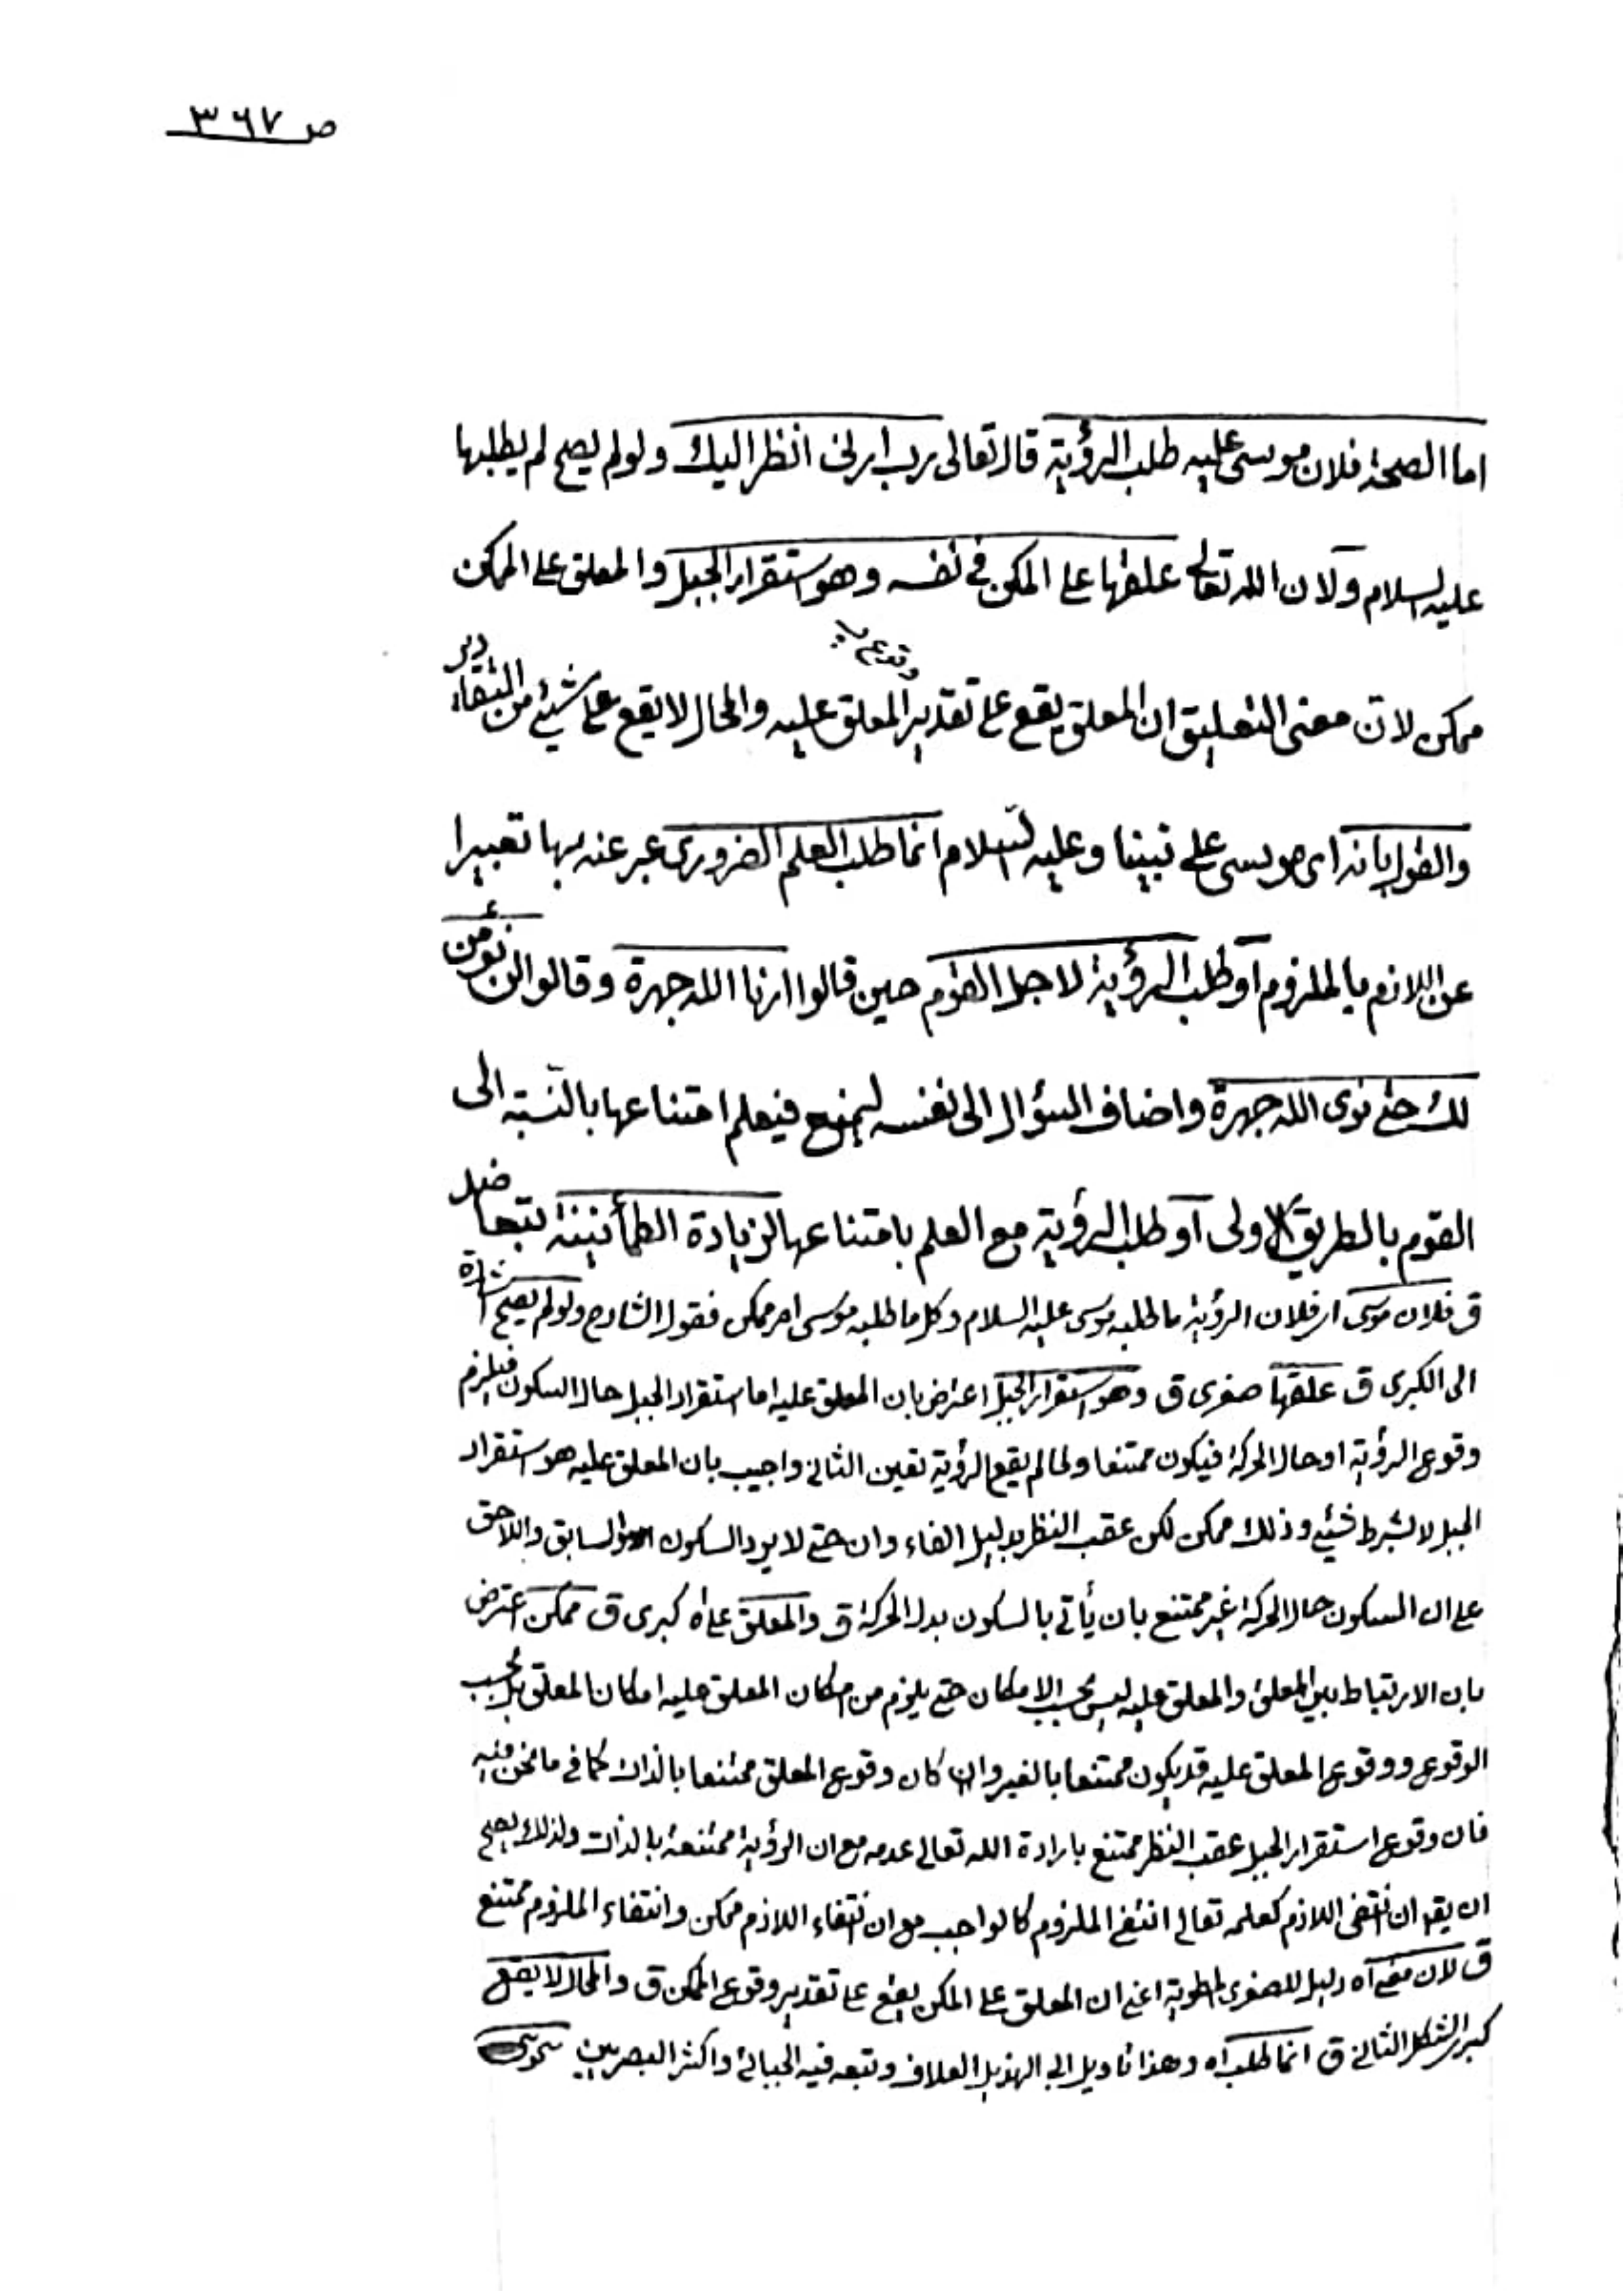 ص ٣٦٧
اما الصحة فلان موسى عليه طلب الرؤية قال تعالى رب ارنى انظر اليك ولو لم يصح لم يطلبها
عليه السلام ولان الله تعالى علقها على الممكن فى نفسه وهو استقرار الجبل والمعلق على الممكن
وقوع
ممكن لان معنى التعليق ان المعلق يقع على تقدير المعلق عليه والمحال لا يقع على شيئ من التقادير
والقول بانه اى موسى على نبينا وعليه السلام انما طلب العلم الضرورى عبر عنه بها تعبيرا
عن اللازم بالملزوم او طلب الرؤية لاجل القوم حين قالوا ارنا الله جهرة وقالوا لن نؤمن
لك حتى نرى الله جهرة واضاف السؤال الى نفسه ليمنع فيعلم امتناعها بالنسبة الى
القوم بالطريق الاولى او طلب الرؤية مع العلم بامتناعها لزيادة الطمأنينة بتعاضد
ق فلان موسى اى فلان الرؤية ما طلبه موسى عليه السلام وكل ما طلبه موسى امر ممكن فقول الشارح ولو لم يصح اشارة
الى الكبرى ق علقها صغرى ق وهو استقرار الجبل اعترض بان المعلق عليه اما استقرار الجبل حال السكون فيلزم
وقوع الرؤية او حال الحركة فيكون ممتنعا ولما لم يقع الرؤية تعين الثانى واجيب بان المعلق عليه هو استقرار
الجبل لا بشرط شيئ وذلك ممكن لكن عقب النظر بدليل الفاء وان حتى لا يرد السكون السابق واللاحق
على ان السكون حال الحركة غير ممتنع بان يأتى بالسكون بدل الحركة ق والمعلق على اه كبرى ق ممكن اعترض
بان الارتباط بين المعلق والمعلق عليه ليس بحسب الامكان حتى يلزم من امكان المعلق عليه امكان المعلق بل بحسب
الوقوع ووقوع المعلق عليه قد يكون ممتنعا بالغير وان كان وقوع المعلق ممتنعا بالذات كما فى ما نحن فيه
فان وقوع استقرار الجبل عقب النظر ممتنع بارادة الله تعالى عدمه مع ان الرؤية ممتنعة بالذات ولذلك يصح
ان يقه ان انتفى اللازم كعلمه تعالى انتفى الملزوم كالواجب مع ان انتفاء اللازم ممكن وانتفاء الملزوم ممتنع
ق لان معنى اه دليل للصغرى المطوية اعنى ان المعلق على الممكن يقع على تقدير وقوع الممكن ق والمحال لا يقع
كبرى الشكل الثانى ق انما طلب اه وهذا تاويل ابى الهذيل العلاف وتبعه فيه الجبائى واكثر البصريين